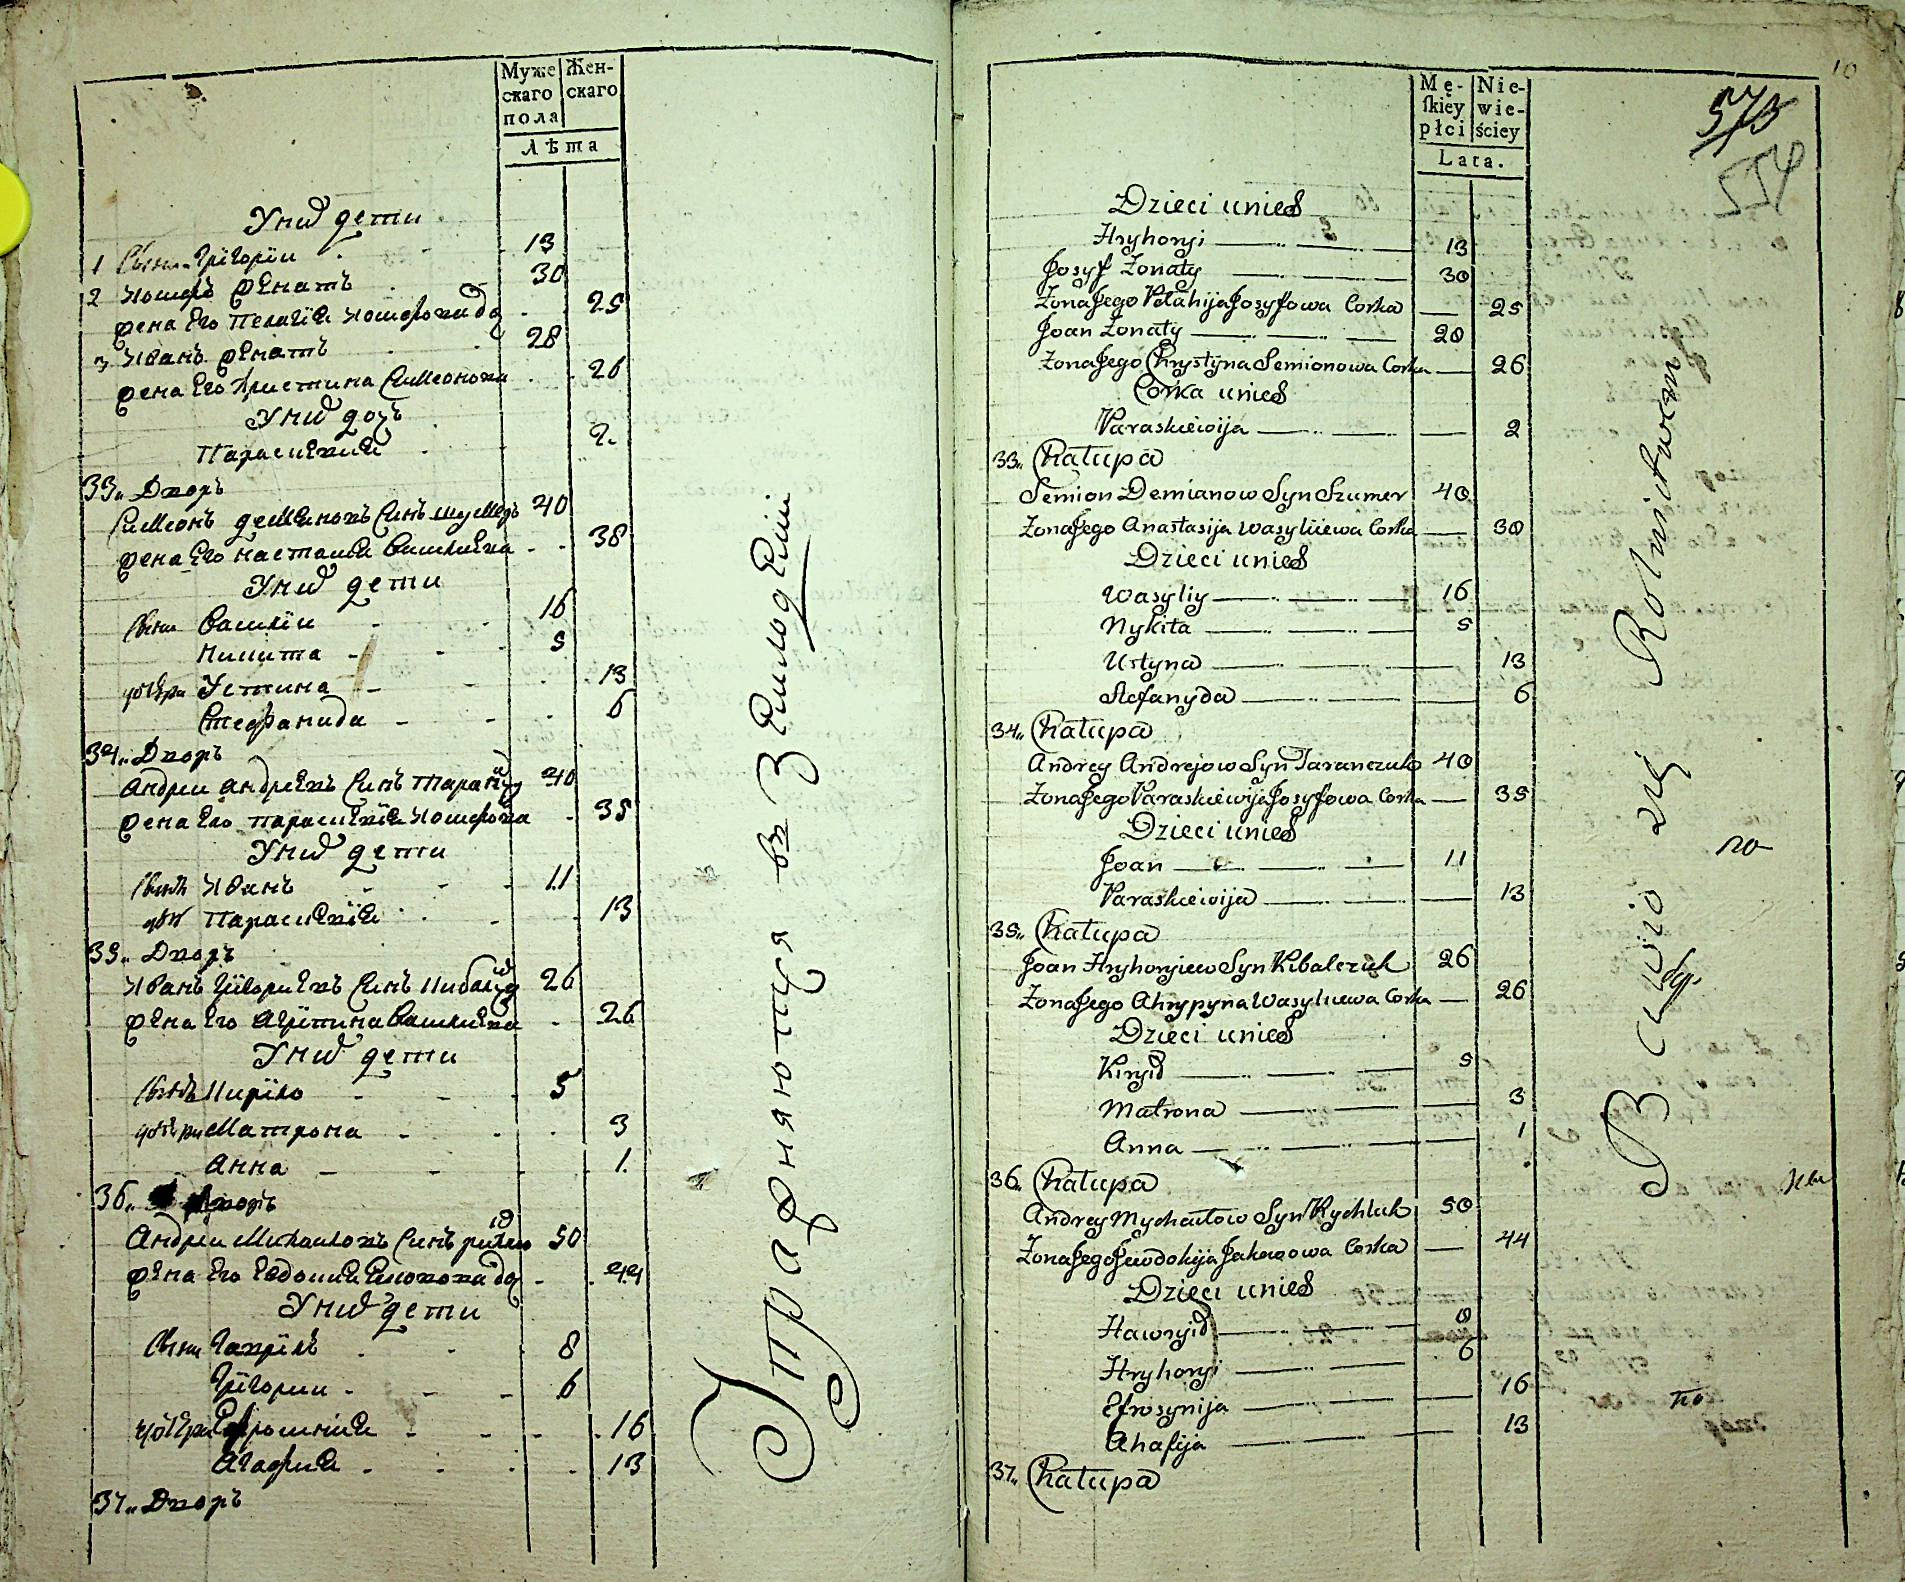 Муже
скаго
пола
Жен-
скаго
Лѣта
У них дети
1 Сыны Григории 13
2 Иосифъ женатъ 30
жена Его Пелагія Иосифова до 25
3 Иванъ женатъ 28
жена Его Христина Симеонова 26
У них дочь
Параскевия 2.
33„ Дворъ
Симеонъ Демяновъ Синъ Шумеръ 40
жена Его настасия Василиева 38
У них дети
Сыны Василіи 16
Никита 5
дочери Устина 13
Стефанида 6
34„ Дворъ
Андреи Андреевъ Синъ Таранчук 40
жена Его параскевия Иосифова 35
У них дети
Сынъ Иванъ 11
дочь Параскевія 13
35„ Дворъ
Иванъ Григориевъ Синъ Кибалчук 26
жена Его Агрипина Василиева 26
У них дети
Сынъ Кирило 5
дочери Матрона 3
Анна 1.
36„ Дворъ
Андреи Михаиловъ Синъ рихлюк 50
жена Его Евдокия Яковова до 44
У них дети
Сыны Гаврілъ 8
Григории 6
дочери Ефросиния 16
Агафия 13
37„ Дворъ
Упражняются въ Земледелии
10
Mę-
ſkiey
płci
Nie-
wie-
ściey
Lata.
575
554
Dzieci u nich
Hryhoryi 13
Josyf Żonaty 30
Żona Jego Pelahija Josyfowa Corka 25
Joan Żonaty 28
Żona Jego Chrystyna Semionowa Corka 26
Corka u nich
Paraskiewija 2
33„ Chałupa
Semion Demianow Syn Szumer 40
Żona Jego Anastasija Wasyliewa Corka 38
Dzieci u nich
Wasyliy 16
Nykita 5
Ustyna 13
Stefanyda 6
34„ Chałupa
Andrey Andrejow Syn Taranczuk 40
Żona Jego Paraskiewija Josyfowa Corka 35
Dzieci u nich
Joan 11
Paraskiewija 13
35„ Chałupa
Joan Hryhoryiew Syn Kibalczuk 26
Żona Jego Ahrypyna Wasyliewa Corka 26
Dzieci u nich
Kirył 5
Matrona 3
Anna 1
36„ Chałupa
Andrey Mychaiłow Syn Rychluk 50
Żona Jego Jewdokija Jakowowa Corka 44
Dzieci u nich
Hawrył 8
Hryhoryi 6
Efrosynija 16
Ahafija 13
37„ Chałupa
Bawio się Rolnictwem
по